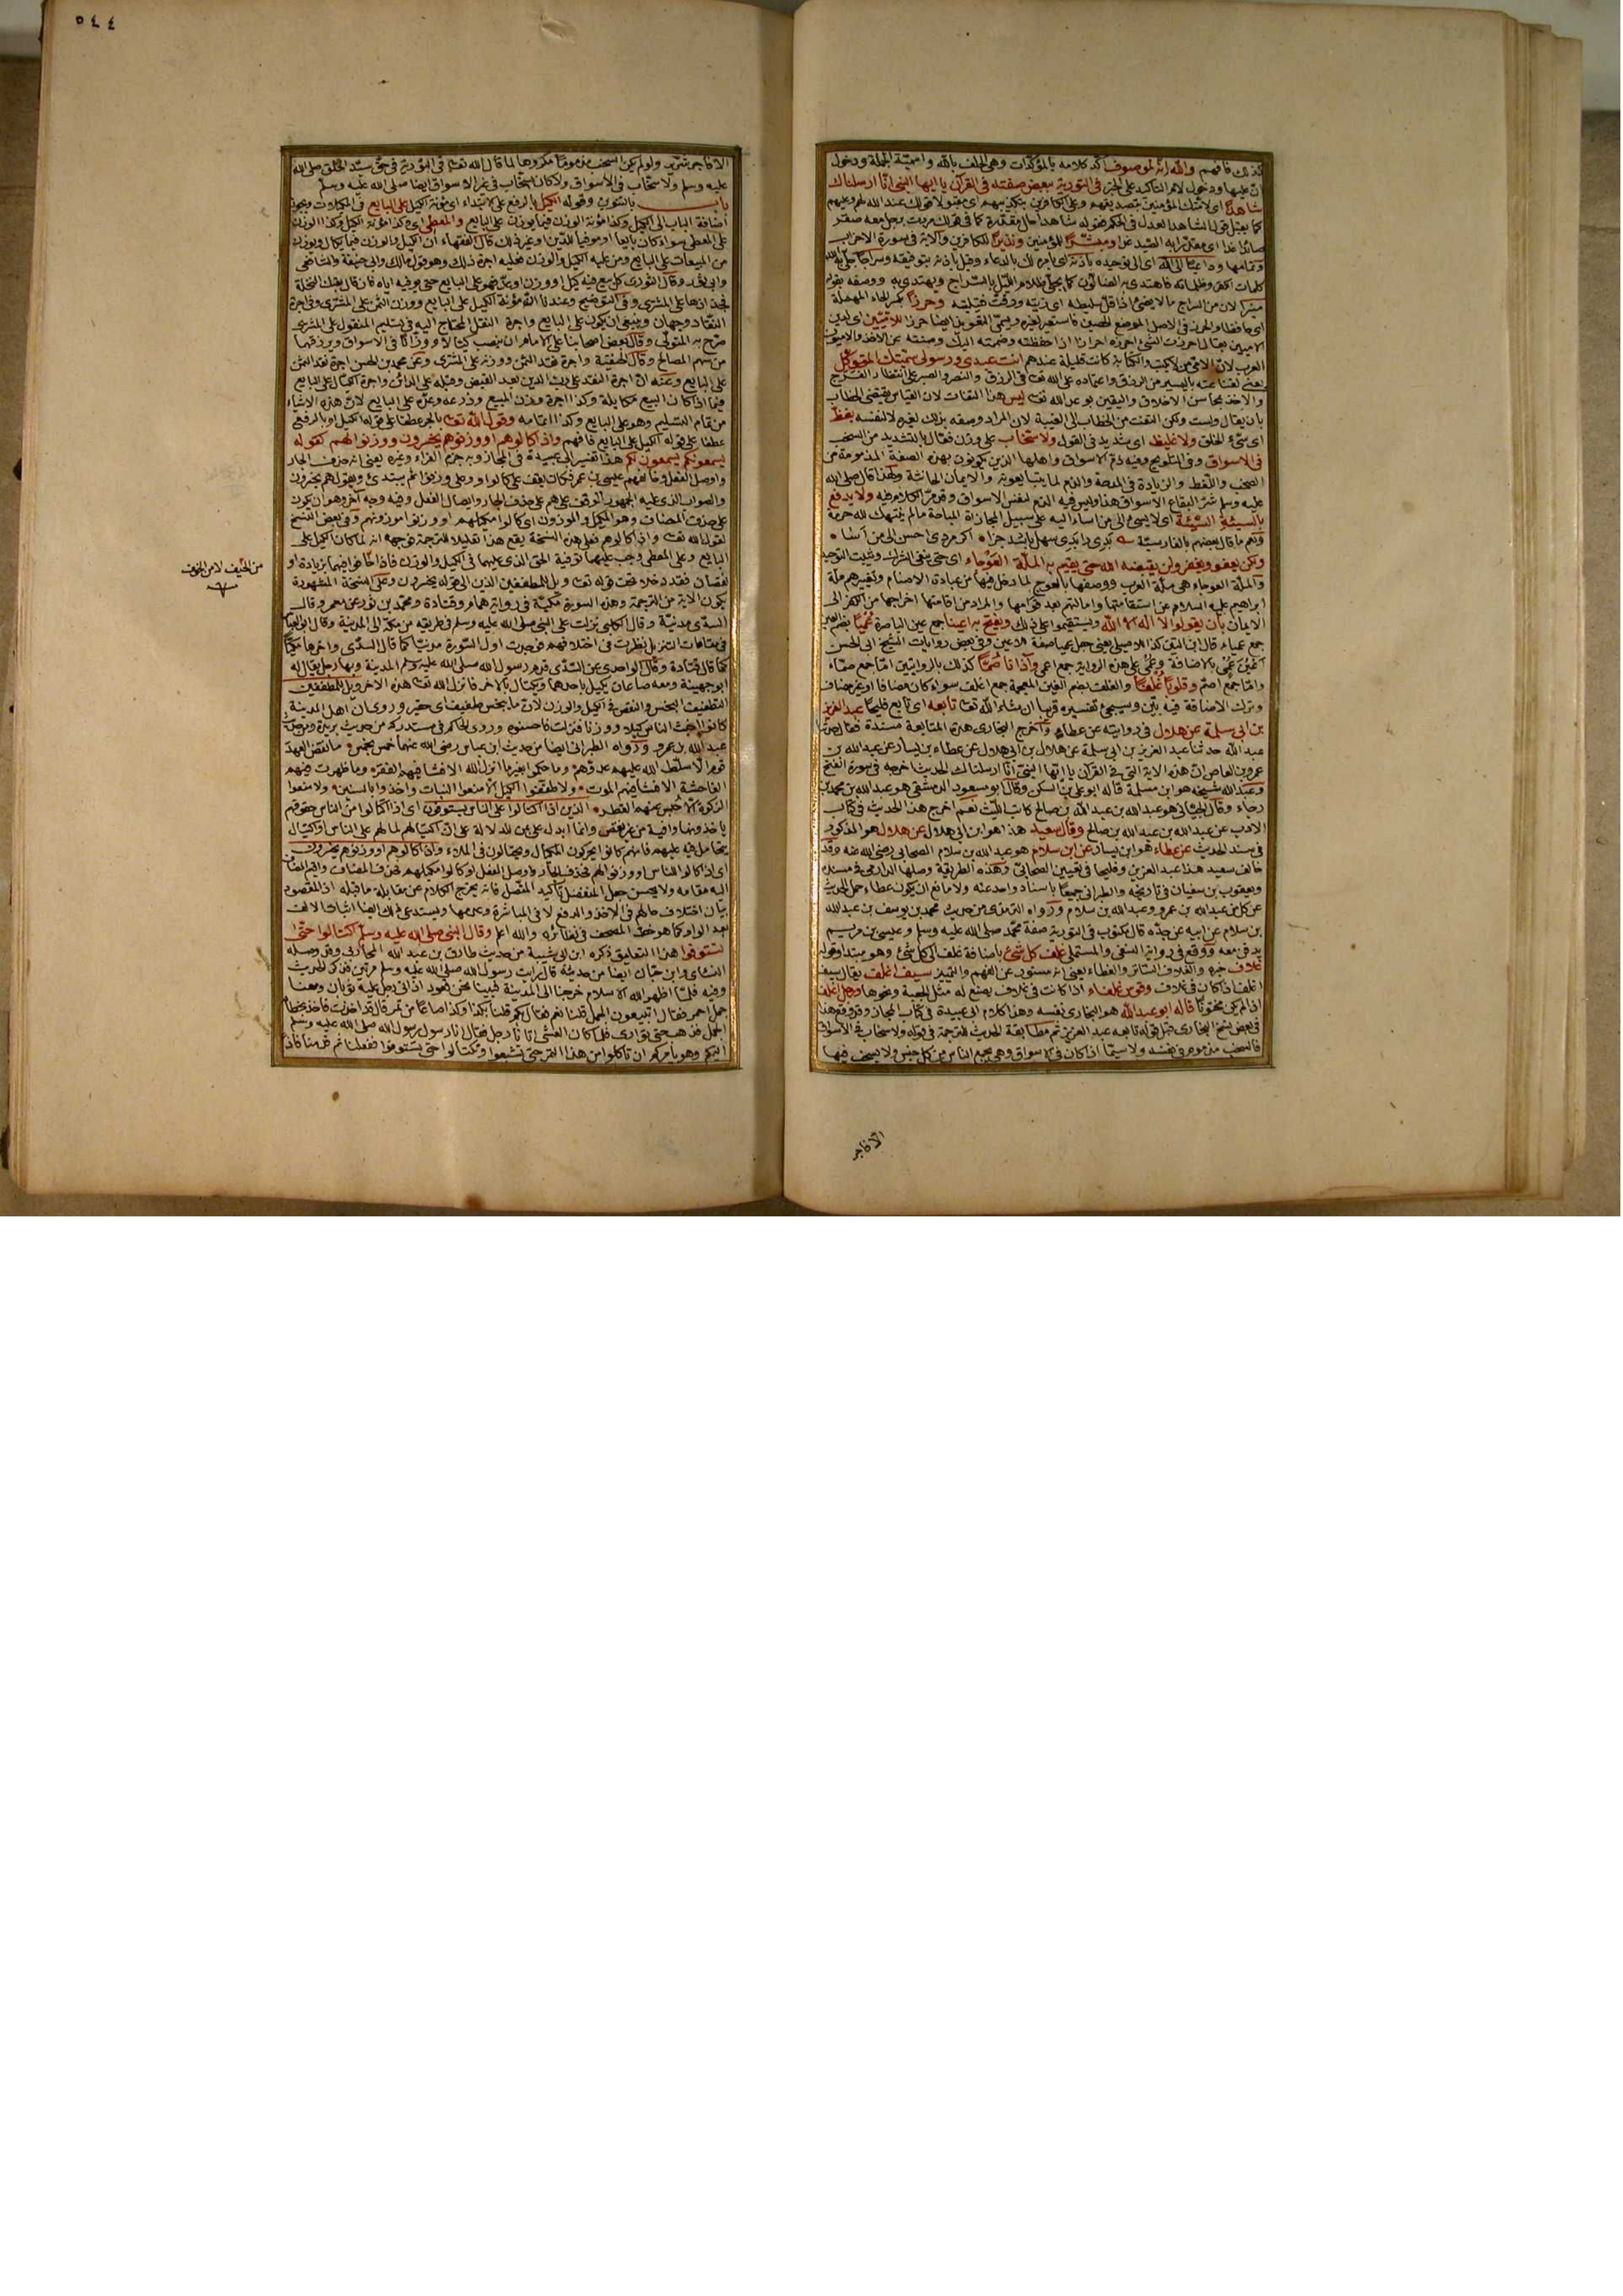 كذلك فافهم والله انه لموصوف اكد كلامه بالمؤكدات وهي الحلف بالله واسمية الجملة ودخول
انّ عليها ودخول لام التأكيد على الخبر في التورية ببعض صفته في القرآن يا ايها النبي انّا ارسلناك
شاهدًا اى لامتك المؤمنين بتصديقهم وعلى الكافرين بتكذيبهم اى مقبولا قولك عند الله لهم وعليهم
كما يقبل قول الشاهد العدل في الحكم فقوله شاهدا حال مقدرة كما في قولك مررت برجل معه صقر
صائدًا غدا اى مقدّرا به الصيد غدا ومبشّرًا للمؤمنين ونذيرًا للكافرين والآية في سورة الاحزاب
وتمامها وداعيًا الى الله اى الى توحيده باذنه اى بامره لك بالدعاء وقيل باذنه بتوفيقه وسراجا
منيرا لان من السراج ما لا يضئ اذا قلّ سليطه اى زيته ودقّت فتيلته وحرزًا بكسر الحاء المهملة
اى حافظا والحرز في الاصل الموضع الحصين فاستعير لغيره ويسمّى التعويذ ايضا حرزا للاميّين اى لدين
الاميين يقال احرزت الشئ احرزه احرازا اذا حفظته وضممته اليك وصنته عن الاخذ والاميون
العرب لان الامّى من لا يكتب والكتابة كانت قليلة عندهم انت عبدى ورسولى سمّيتك المتوكّل
يعنى لقناعته باليسير من الرزق واعتماده على الله تعـ في الرزق والنصر والصبر على انتظار الفرج
والاخذ بمحاسن الاخلاق واليقين بوعد الله تعـ ليس هذا التفات لان القياس يقتضى الخطاب
بان يقال ولست ولكن التفت من الخطاب الى الغيبة لان المراد وصفه بذلك لغيره لا لنفسه بفظّ
اى سئ الخلق ولا غليظ اى شديد في القول ولا سخّاب على وزن فعّال بالتشديد من السخب
في الاسواق وفي التلويح وفيه ذمّ الاسواق واهلها الذين يكونون بهذه الصفة المذمومة من
الصخب واللغط والزيادة في المدحة والذم لما يتبايعونه والايمان الحانثة ولهذا قال صلى الله
عليه وسلم شرّ البقاع الاسواق هذا وليس فيه الذم لنفس الاسواق وقد مرّ الكلام فيه ولا يدفع
بالسيئة السيّئة اى لا يسئ الى من اساء اليه على سبيل المجازاة المباحة ما لم ينتهك لله حرمة
ونعم ما قال بعضهم بالفارسيّة بدى را بدى سهل باشد جزا اكر مردى احسن الى من اسا
ولكن يعفو ويغفر ولن يقبضه الله حتى يقيم به الملّة العوجاء اى حتى ينفى الشرك ويثبت التوحيد
والملّة العوجاء هي ملّة العرب ووصفها بالعوج لما دخل فيها من عبادة الاصنام وتغييرهم ملّة
ابراهيم عليه السلام عن استقامتها وامالتهم بعد قوامها والمراد من اقامتها اخراجها من الكفر الى
الايمان بأن يقولوا لا اله الا الله ويستقيموا على ذلك ويفتح به اعينا جمع عين الباصرة عُميًا بضم العين
جمع عمياء قال ابن التين كذا للاصيلى يعنى جعل عميا صفة للاعين وفي بعض روايات الشيخ ابى الحسن
أعينَ عُمْىٍ بالاضافة وعُمْى على هذه الرواية جمع اعمى وآذانًا صُمًّا كذلك بالروايتين امّا جمع صمّاء
وامّا جمع اصمّ وقلوبًا غُلفًا والغلف بضم الغين المعجمة جمع اغلف سواء كان مضافا او غير مضاف
وترك الاضافة فيه بيّن وسيجئ تفسيره قريبا ان شاء الله تعـ تابعه اى تابع فليحًا عبد العزيز
بن ابى سلمة عن هلال في روايته عن عطاء واخرج البخارى هذه المتابعة مسندة فقال حدثنا
عبد الله حدثنا عبد العزيز بن ابى سلمة عن هلال بن ابى هلال عن عطاء بن يسار عن عبد الله بن
عمرو بن العاص انّ هذه الاية التي في القرآن يا ايّها النبىّ انّا ارسلناك الحديث اخرجه في سورة الفتح
وعبد الله شيخه هو ابن مسلمة قاله ابو على بن السكن وقال ابو مسعود الدمشقى هو عبد الله بن محمد بن
رجاء وقال الجيّانى هو عبد الله بن صالح كاتب الليث نعم اخرج هذا الحديث في كتاب
الادب عن عبد الله بن عبد الله بن صالح وقال سعيد هذا هو ابن ابى هلال عن هلال هو المذكور
في سند الحديث عن عطاء هو ابن يسار عن ابن سلام هو عبد الله بن سلام الصحابى رضى الله عنه وقد
خالف سعيد هذا عبد العزيز وفليحا في تعيين الصحابىّ وهذه الطريقة وصلها الدارمى في مسنده
ويعقوب بن سفيان في تاريخه والطبرانى جميعًا باسناد واحد عنه ولا مانع ان يكون عطاء حمل الحديث
عن كل من عبد الله بن عمرو وعبد الله بن سلام ورواه الترمذى من حديث محمد بن يوسف بن عبد الله
بن سلام عن ابيه عن جدّه قال مكتوب في التورية صفة محمّد صلى الله عليه وسلم وعيسى بن مريم
يدفن معه ووقع في رواية النسفى والمستملى غلف كل شئ باضافة غلف الى كل شئ وهو مبتدا وقوله
غلاف خبره والغلاف الساتر والغطاء يعنى انه مستور عن الفهم والتمييز سيف اغلف يقال سيف
اغلف اذا كان في غلاف وقوس غلفاء اذا كانت في غلاف يصنع له مثل الجعبة ونحوها ورجل اغلف
اذا لم يكن مختونًا قاله ابو عبد الله هو البخارى نفسه وهذا كلام ابى عبيدة في كتاب المجاز وقد وقع هذا
في بعض نسخ البخارى قبل قوله تابعه عبد العزيز ثم مطابقة الحديث للترجمة في قوله ولا سخاب في الاسواق
فالسخب مذموم في نفسه ولا سيما اذا كان في الاسواق وهي مجمع الناس من كل جنس ولا يسخب فيها
الّا فاجر
٥٤٤
الا فاجر شرّير ولو لم يكن السخب مذمومًا مكروها لما قال الله تعـ في التورية في حق سيّد الخلق صلى الله
عليه وسلم ولا سخّاب في الاسواق ولا كان السخّاب في غير الاسواق ايضا صلى الله عليه وسلم
باب بالتنوين وقوله الكيل بالرفع على الابتداء اى مؤنة الكيل على البايع في المكيلات ويجوز
اضافة الباب الى الكيل وكذا مؤنة الوزن فيما يوزن على البايع والمعطى اى وكذا مؤنة الكيل وكذا الوزن
على المعطى سواء كان بايعا او موفيا للدّين او غير ذلك قال الفقهاء ان الكيل والوزن فيما يكال ويوزن
من المبيعات على البايع ومن عليه الكيل والوزن فعليه اجرة ذلك وهو قول مالك وابى حنيفة والشافعى
وابى ثور وقال الثورى كل بيع فيه كيل او وزن او عدّ فهو على البايع حتى يوفيه اياه فان قال بعتك النخلة
فجذاذها على المشترى وفي التوضيح وعندنا انّ مؤنة الكيل على البايع ووزن الثمن على المشترى وفي اجرة
النقّاد وجهان وينبغى ان يكون على البايع واجرة النقل المحتاج اليه في تسليم المنقول على المشترى
صرّح به المتولّى وقال بعض اصحابنا على الامام ان ينصب كيّالا ووزّانًا في الاسواق ويرزقهما
من سهم المصالح وقال الحنفية واجرة نقد الثمن ووزنه على المشترى وعن محمد بن الحسن اجرة نقد الثمن
على البايع وعنه انّ اجرة النقد على رب الدين بعد القبض وقبله على المدائن واجرة الكيّال على البايع
فيما اذا كان البيع مكايلة وكذا اجرة وزن المبيع وذرعه وعدّه على البايع لانّ هذه الاشياء
من تمام التسليم وهو على البايع وكذا اتمامه وقول الله تعـ بالجر عطفا على قوله الكيل او بالرفع
عطفا على قوله الكيل على البايع فافهم واذا كالوهم او وزنوهم يخسرون ووزنوا لهم كقوله
يسمعونكم يسمعون لكم هذا تفسير ابى عبيدة في المجاز وبه جزم الفراء وغيره يعنى انه حذف الجار
واوصل الفعل وخالفهم عيسى بن عمر فكان يقف على كالوا وعلى وزنوا ثم يبتدئ ويقول هم يخسرون
والصواب الذى عليه الجمهور الوقف على هم على حذف الجار وايصال الفعل وفيه وجه آخر وهو ان يكون
على حذف المضاف وهو المكيل والموزون اى كالوا مكيلهم او وزنوا موزونهم وفي بعض النسخ
لقول الله تعـ واذا كالوهم فعلى هذه النسخة يقع هذا تعليلا للترجمة فوجهه انه لما كان الكيل على
البايع وعلى المعطى وجب عليهما توفية الحق الذى عليهما في الكيل والوزن فاذا خانوا فيهما بزيادة او
نقصان فقد دخلا تحت قوله تعـ ويل للمطففين الذين الى قوله يخسرون وعلى النسخة المشهورة
يكون الاية من الترجمة وهذه السورة مكّيّة في رواية همام وقتادة ومحمد بن ثور عن معمر وقال
السدّى مدنيّة وقال الكلبى نزلت على النبى صلى الله عليه وسلم في طريقه من مكّة الى المدينة وقال ابو العباس
في مقامات التنزيل نظرت في اختلافهم فوجدت اول السّورة مدنيّا كما قال السدّى واخرها مكيّا
كما قال قتادة وقال الواحدى عن السّدّى قدم رسول الله صلى الله عليه وسلم المدينة وبها رجل يقال له
ابو جهينة ومعه صاعان يكيل باحدهما ويكتال بالاخر فانزل الله تعـ هذه الاخر ويل للمطففين
التطفيف البخس والنقص في الكيل والوزن لانّ ما يبخس طفيف اى حقير وروى ان اهل المدينة
كانوا اخبث الناس كيلا ووزنا فنزلت فاحسنوه وروى الحاكم في مستدركه من حديث بريدة ومن حديث
عبد الله بن عمرو ورواه الطبرانى ايضا من حديث ابن عباس رضى الله عنهما خمس بخمس ما نقض العهد
قوم الّا سلّط الله عليهم عدوّهم وما حكموا بغير ما انزل الله الا فشا فيهم الفقر وما ظهرت فيهم
الفاحشة الا فشا فيهم الموت ولا طفّفوا الكيل الا منعوا النبات واخذوا بالسنين ولا منعوا
الزكوة الا حُبس عنهم القطر الذين اذا اكتالوا على الناس يستوفون اى اذا اكتالوا من الناس حقوقهم
يأخذونها وافية من غير نقص وانما ابدل على من للدلالة على انّ اكتيالهم لما لهم على الناس او اكتيال
يتحامل فيه عليهم فانهم كانوا يحركون المكيال ويحتالون في الملاء واذا كالوهم او وزنوهم يخسرون
اى اذا كالوا للناس او وزنوا لهم فحذف الجار واوصل الفعل او كالوا مكيلهم فحذف المضاف واقيم المضاف
اليه مقامه ولا يحسن جعل المنفصل تأكيد المتصل فانه يخرج الكلام عن مقابلة ما قبله اذ المقصود
بيان اختلاف حالهم في الاخذ والدفع لا في المباشرة وعدمها ويستدعى ذلك ايضا اثبات الالف
بعد الواو كما هو خط المصحف في نظائره والله اعلم وقال النبى صلى الله عليه وسلّم اكتالوا حتّى
تستوفوا هذا التعليق ذكره ابن ابى شيبة من حديث طارق بن عبد الله المحاربى وقد وصله
النسائى وابن حبّان ايضا من حديثه قال رايت رسول الله صلى الله عليه وسلم مرتين فذكر الحديث
وفيه فلمّا اظهر الله الاسلام خرجنا الى المدينة فبينا نحن قعود اذ اتى رجل عليه ثوبان ومعنا
جمل احمر فقال اتبيعون الجمل قلنا نعم فقال بكم قلنا بكذا وكذا صاعًا من تمر قال قد اخذت فاخذ بخطام
الجمل فذهب حتى توارى فلما كان العشى اتانا رجل فقال انا رسول رسول الله صلى الله عليه وسلم
اليكم وهو يأمركم ان تاكلوا من هذا التمر حتى تشبعوا وتكتالوا حتى تستوفوا ففعلنا ثم قدمنا فاذا
من الحيف لا من الخوف